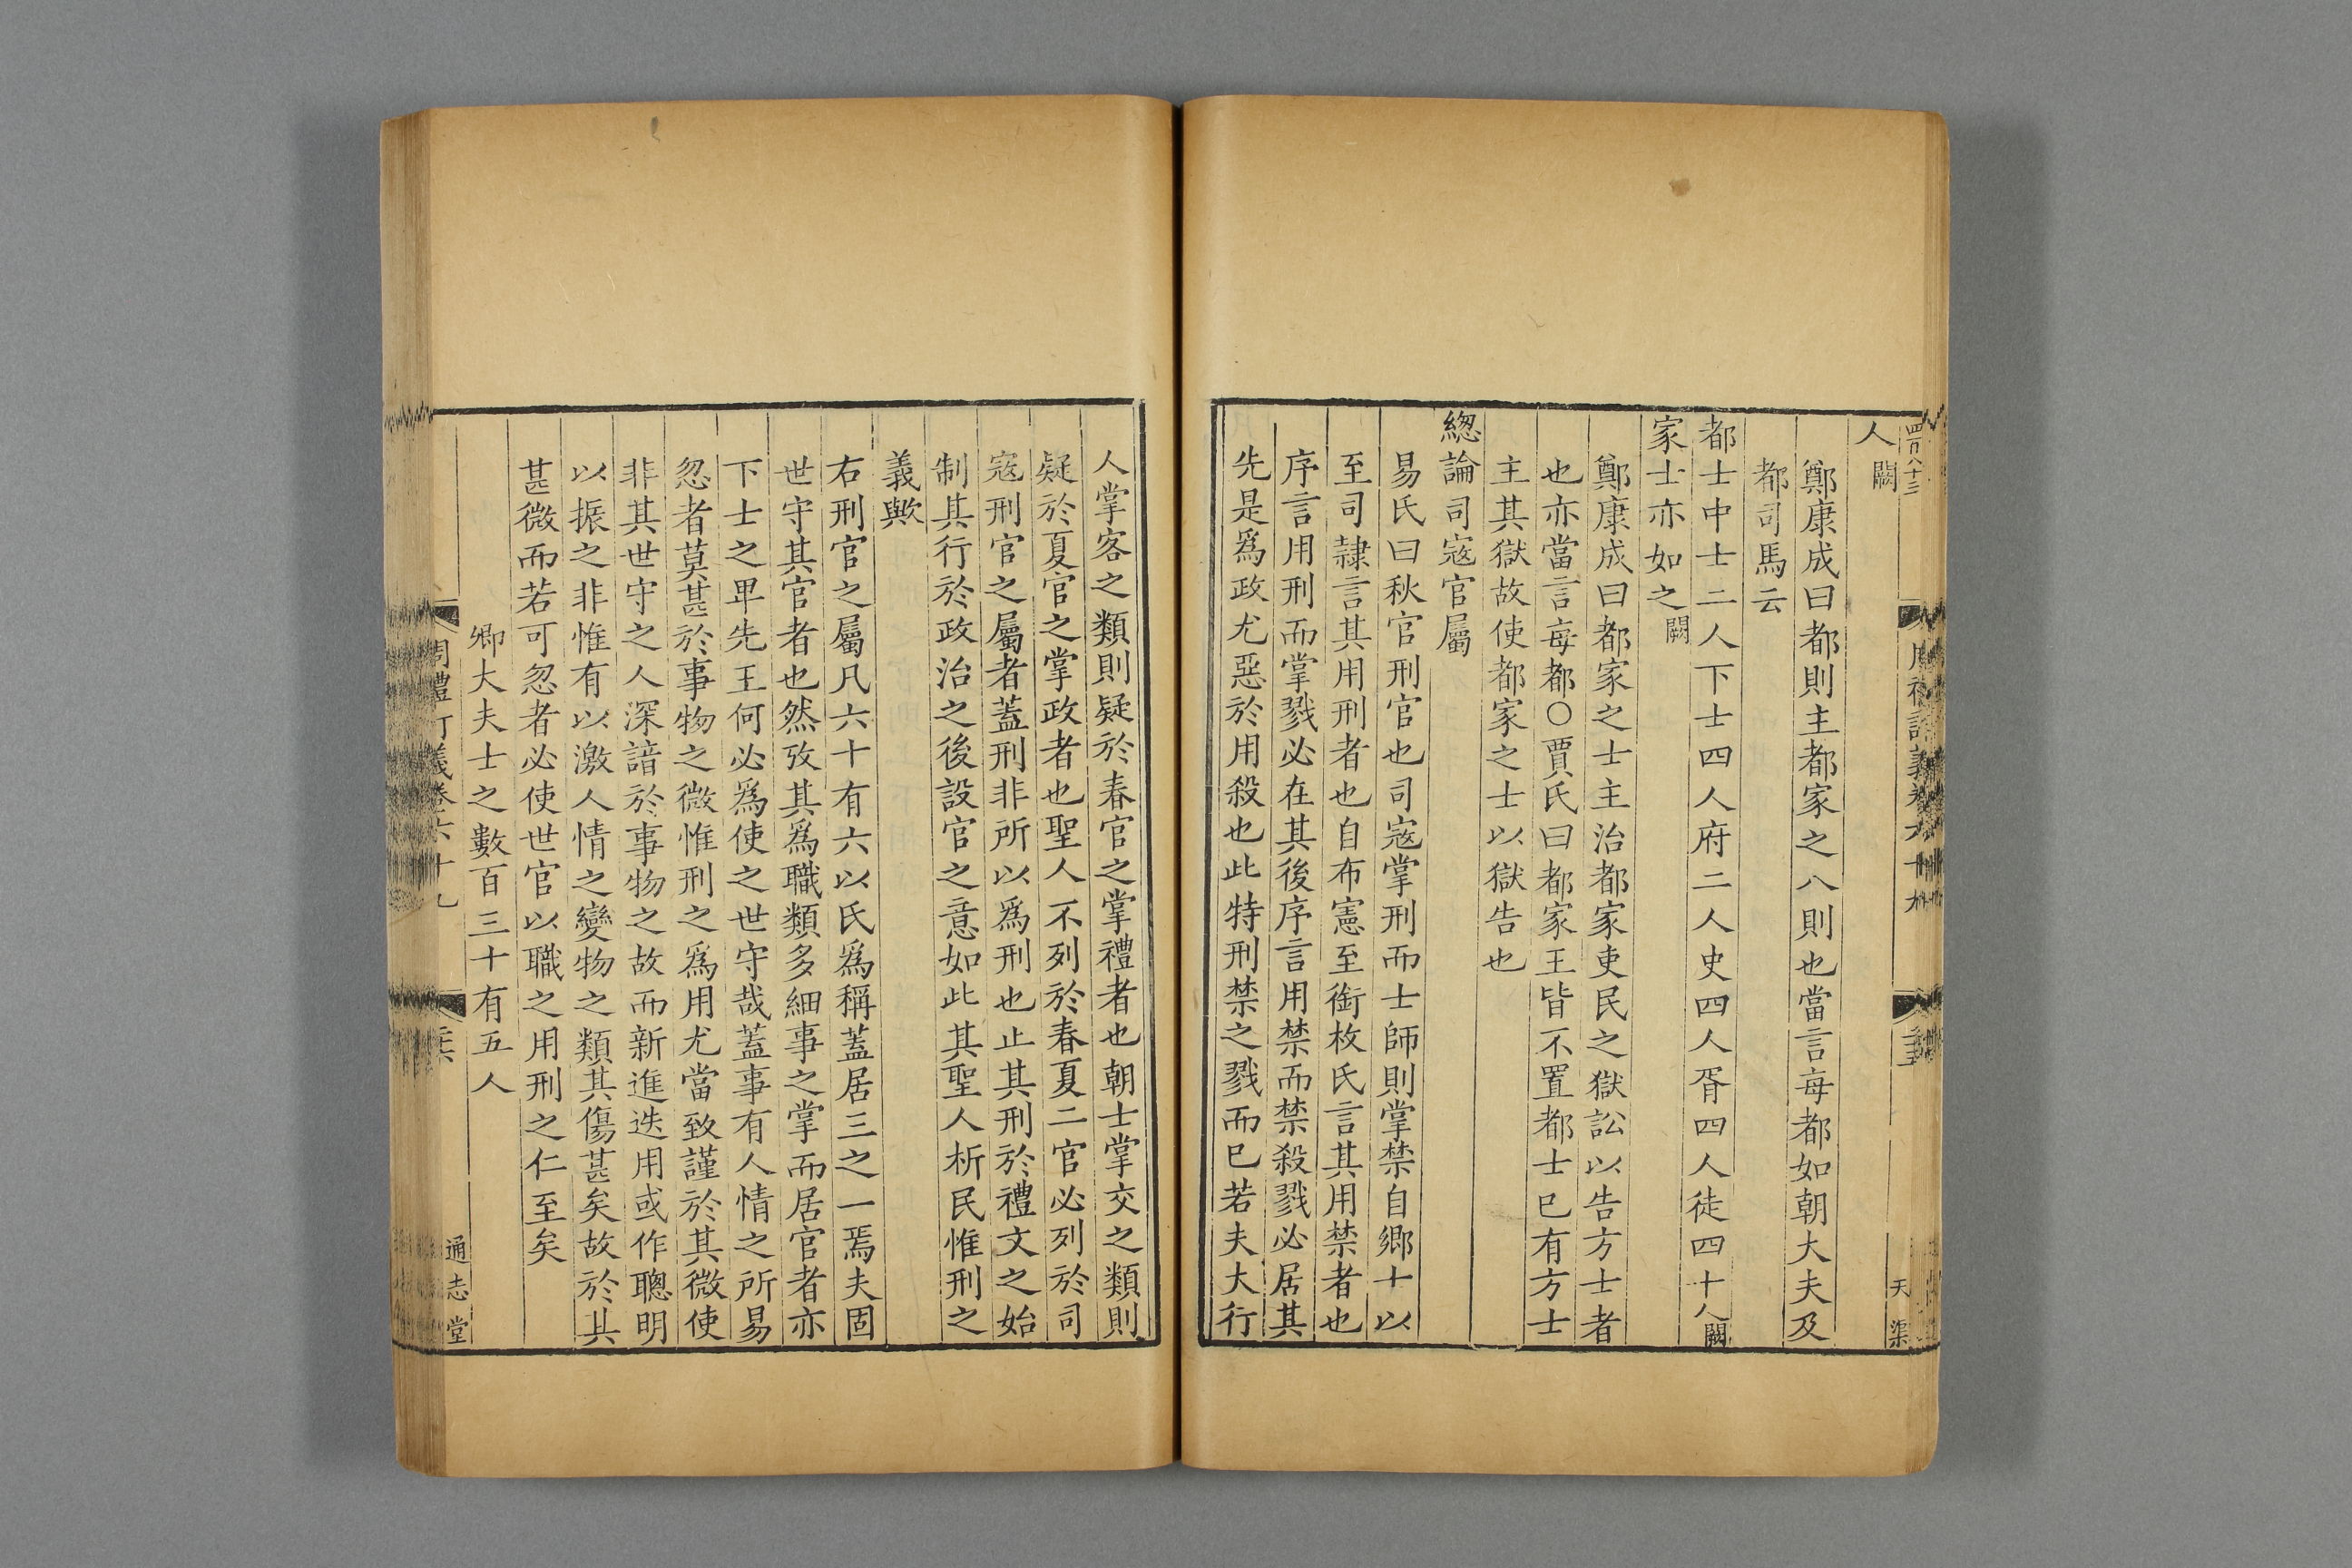 四百八十三
人闕
鄭康成曰都則主都家之八則也當言每都如朝大夫及
都司馬云
都士中士二人下士四人府二人史四人胥四人徒四十人闕
家士亦如之闕
鄭康成曰都家之士主治都家吏民之獄訟以告方士者
也亦當言每都○賈氏曰都家王皆不置都士已有方士
主其獄故使都家之士以獄告也
緫論司寇官屬
易氏曰秋官刑官也司寇掌刑而士師則掌禁自鄉士以
至司隷言其用刑者也自布憲至銜枚氏言其用禁者也
序言用刑而掌戮必在其後序言用禁而禁殺戮必居其
先是爲政尤惡於用殺也此特刑禁之戮而已若夫大行
人掌客之類則疑於春官之掌禮者也朝士掌交之類則
疑於夏官之掌政者也聖人不列於春夏二官必列於司
寇刑官之屬者蓋刑非所以爲刑也止其刑於禮文之始
制其行於政治之後設官之意如此其聖人析民惟刑之
義歟
右刑官之屬凡六十有六以氏爲稱蓋居三之一焉夫固
世守其官者也然攷其爲職類多細事之掌而居官者亦
下士之卑先王何必爲使之世守哉蓋事有人情之所易
忽者莫甚於事物之微惟刑之爲用尤當致謹於其微使
非其世守之人深諳於事物之故而新進迭用或作聰明
以振之非惟有以激人情之變物之類其傷甚矣故於其
甚微而若可忽者必使世官以職之用刑之仁至矣
卿大夫士之數百三十有五人
周禮訂義卷六十九
通志堂